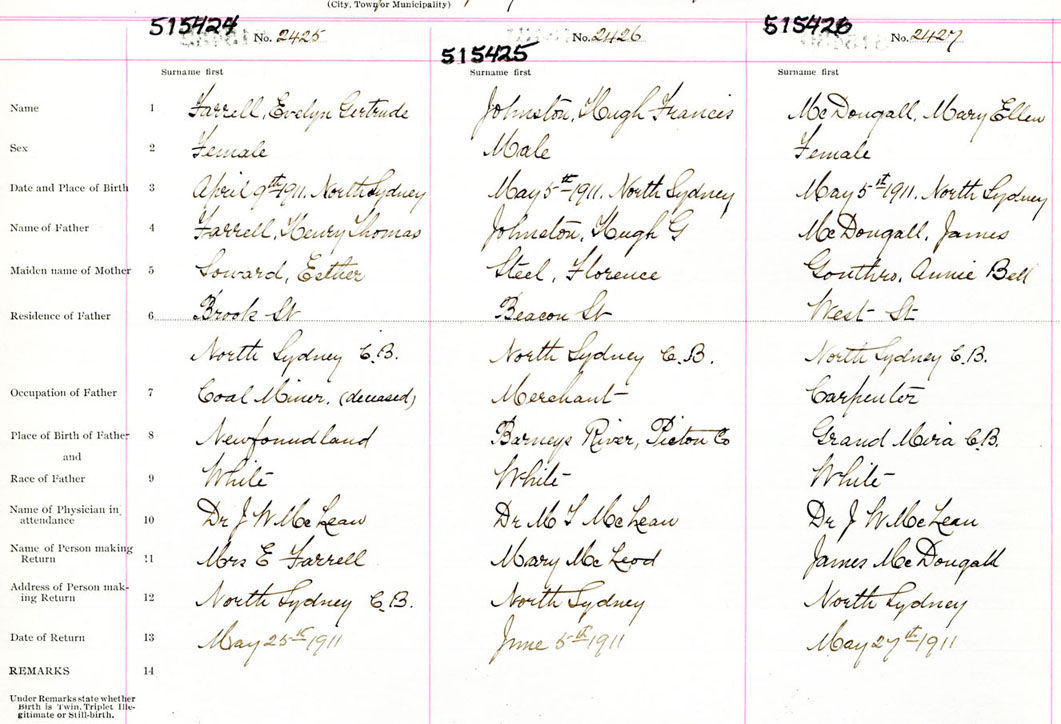 (City, Town or Municipality)
515424 No. 2425 515425 No. 2426 515426 No. 2427
Surname first Surname first Surname first
Name 1 Farrell, Evelyn Gertrude Johnston, Hugh Francis McDougall, Mary Ellen
Sex 2 Female Male Female
Date and Place of Birth 3 April 9th 1911. North Sydney May 5th 1911. North Sydney May 5st 1911. North Sydney
Name of Father 4 Farrell, Henry Thomas Johnston, Hugh G McDougall, James
Maiden name of Mother 5 Soward, Esther Steel, Florence Gouthro, Annie Bell
Residence of Father 6 Brook St Beacon St West St
North Sydney C.B. North Sydney C.B. North Sydney C.B.
Occupation of Father 7 Coal Miner. (deceased) Merchant Carpenter
Place of Birth of Father 8 Newfoundland Barneys River, Picton Co Grand Mira C.B.
and
Race of Father 9 White White White
Name of Physician in attendance 10 Dr J W McLean Dr M T McLean Dr J W McLean
Name of Person making Return 11 Mrs E Farrell Mary McLeod James McDougall
Address of Person mak-ing Return 12 North Sydney C.B. North Sydney North Sydney
Date of Return 13 May 25th 1911 June 5th 1911 May 27th 1911
REMARKS 14
Under Remarks state whether
Birth is Twin, Triplet Ille-
gitimate or Still-birth.